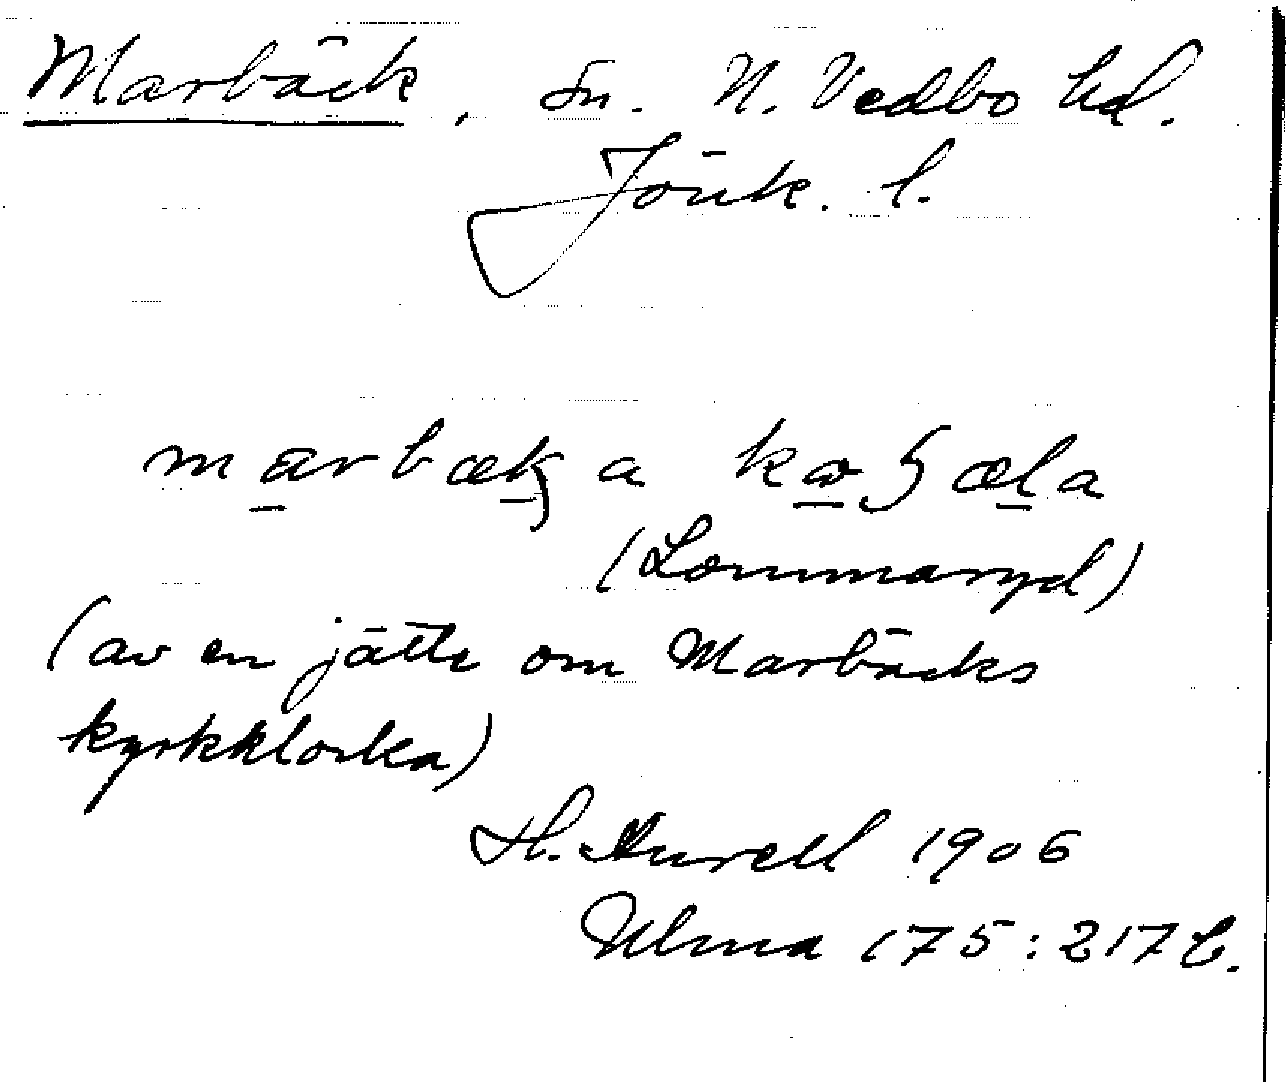 Marbäck, sn. N. Vedbo hd.
Jönk. l.
marbæka koſæla
(Lommaryd)
(av en jätte om Marbäcks
kyrkklocka)
H. Aurell 1906
Ulma 175:217 b.